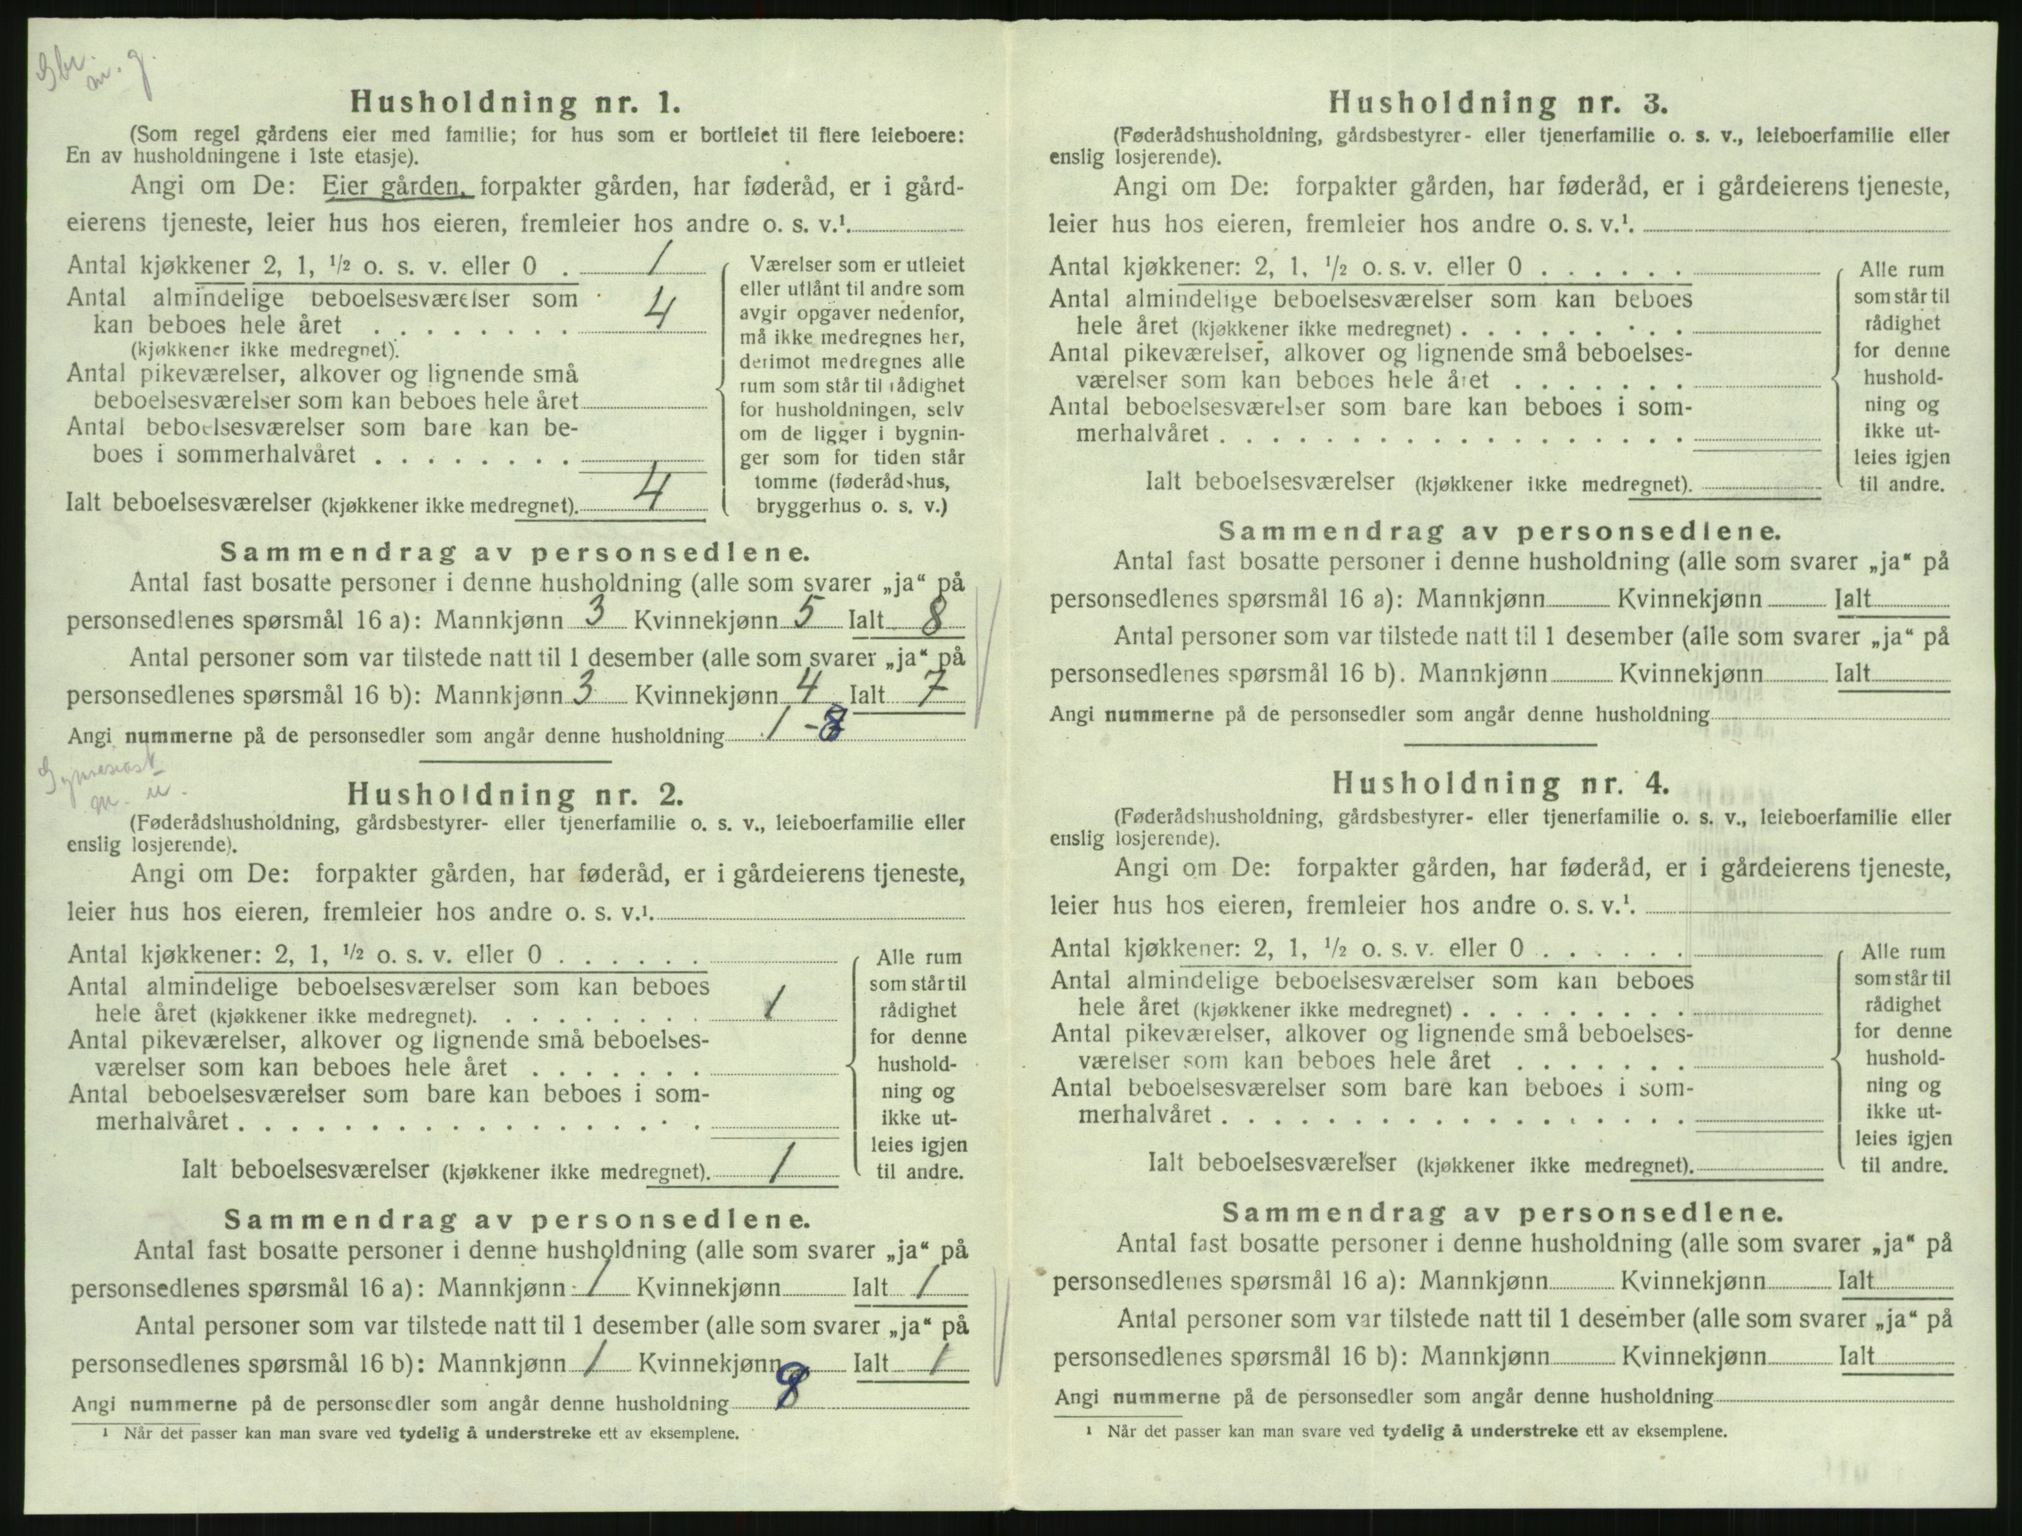 Gbr.
m. g.
Husholdning nr. 1.
(Som regel gårdens eier med familie; for hus som er bortleiet til flere leieboere:
En av husholdningene i 1ste etasje).
Angi om De: Eier gården, forpakter gården, har føderåd, er i gård-
eierens tjeneste, leier hus hos eieren, fremleier hos andre o. s. v.¹.
Antal kjøkkener 2, 1, ½ o. s. v. eller 0 . 1
Antal almindelige beboelsesværelser som
kan beboes hele året . . . . . . . . 4
(kjøkkener ikke medregnet).
Antal pikeværelser, alkover og lignende små
beboelsesværelser som kan beboes hele året
Antal beboelsesværelser som bare kan be-
boes i sommerhalvåret . . . . . . . .
Ialt beboelsesværelser (kjøkkener ikke medregnet). 4
Værelser som er utleiet
eller utlånt til andre som
avgir opgaver nedenfor,
må ikke medregnes her,
derimot medregnes alle
rum som står til rådighet
for husholdningen, selv
om de ligger i bygnin-
ger som for tiden står
tomme (føderådshus,
bryggerhus o. s. v.)
Sammendrag av personsedlene.
Antal fast bosatte personer i denne husholdning (alle som svarer „ja“ på
personsedlenes spørsmål 16 a): Mannkjønn 3 Kvinnekjønn 5 Ialt 8
Antal personer som var tilstede natt til 1 desember (alle som svarer „ja“ på
personsedlenes spørsmål 16 b): Mannkjønn 3 Kvinnekjønn 4 Ialt 7
Angi nummerne på de personsedler som angår denne husholdning 1-8
m. u.
Husholdning nr. 2.
(Føderådshusholdning, gårdsbestyrer- eller tjenerfamilie o. s. v., leieboerfamilie eller
enslig losjerende).
Angi om De: forpakter gården, har føderåd, er i gårdeierens tjeneste,
leier hus hos eieren, fremleier hos andre o. s. v.¹.
Antal kjøkkener: 2, 1, ½ o. s. v. eller 0 . . . . . .
Antal almindelige beboelsesværelser som kan beboes
hele året (kjøkkener ikke medregnet). . . . . . . . . 1
Antal pikeværelser, alkover og lignende små beboelses-
værelser som kan beboes hele året . . . . . . .
Antal beboelsesværelser som bare kan beboes i som-
merhalvåret . . . . . . . . . . . . . . . . . .
Ialt beboelsesværelser (kjøkkener ikke medregnet). 1
Alle rum
som står til
rådighet
for denne
hushold-
ning og
ikke ut-
leies igjen
til andre.
Sammendrag av personsedlene.
Antal fast bosatte personer i denne husholdning (alle som svarer „ja“ på
personsedlenes spørsmål 16 a): Mannkjønn 1 Kvinnekjønn Ialt 1
Antal personer som var tilstede natt til 1 desember (alle som svarer „ja“ på
personsedlenes spørsmål 16 b): Mannkjønn 1 Kvinnekjønn Ialt 1
Angi nummerne på de personsedler som angår denne husholdning
¹ Når det passer kan man svare ved tydelig å understreke ett av eksemplene.
Husholdning nr. 3.
(Føderådshusholdning, gårdsbestyrer- eller tjenerfamilie o. s. v., leieboerfamilie eller
enslig losjerende).
Angi om De: forpakter gården, har føderåd, er i gårdeierens tjeneste,
leier hus hos eieren, fremleier hos andre o. s. v.¹.
Antal kjøkkener: 2, 1, ½ o. s. v. eller 0 . . . . . .
Antal almindelige beboelsesværelser som kan beboes
hele året (kjøkkener ikke medregnet) . . . . . . . . .
Antal pikeværelser, alkover og lignende små beboelses-
værelser som kan beboes hele året . . . . . . .
Antal beboelsesværelser som bare kan beboes i som-
merhalvåret . . . . . . . . . . . . . . . . . .
Ialt beboelsesværelser (kjøkkener ikke medregnet).
Alle rum
som står til
rådighet
for denne
hushold-
ning og
ikke ut-
leies igjen
til andre.
Sammendrag av personsedlene.
Antal fast bosatte personer i denne husholdning (alle som svarer „ja“ på
personsedlenes spørsmål 16 a): Mannkjønn Kvinnekjønn Ialt
Antal personer som var tilstede natt til 1 desember (alle som svarer „ja“ på
personsedlenes spørsmål 16 b). Mannkjønn Kvinnekjønn Ialt
Angi nummerne på de personsedler som angår denne husholdning
Husholdning nr. 4.
(Føderådshusholdning, gårdsbestyrer- eller tjenerfamilie o. s. v., leieboerfamilie eller
enslig losjerende).
Angi om De: forpakter gården, har føderåd, er i gårdeierens tjeneste,
leier hus hos eieren, fremleier hos andre o. s. v.¹.
Antal kjøkkener: 2, 1, ½ o. s. v. eller 0 . . . . . .
Antal almindelige beboelsesværelser som kan beboes
hele året (kjøkkener ikke medregnet) . . . . . . . . .
Antal pikeværelser, alkover og lignende små beboelses-
værelser som kan beboes hele året . . . . . . .
Antal beboelsesværelser som bare kan beboes i som-
merhalvåret . . . . . . . . . . . . . . . . . .
Ialt beboelsesværelser (kjøkkener ikke medregnet).
Alle rum
som står til
rådighet
for denne
hushold-
ning og
ikke ut-
leies igjen
til andre.
Sammendrag av personsedlene.
Antal fast bosatte personer i denne husholdning (alle som svarer „ja“ på
personsedlenes spørsmål 16 a): Mannkjønn Kvinnekjønn Ialt
Antal personer som var tilstede natt til 1 desember (alle som svarer „ja“ på
personsedlenes spørsmål 16 b): Mannkjønn Kvinnekjønn Ialt
Angi nummerne på de personsedler som angår denne husholdning
¹ Når det passer kan man svare ved tydelig å understreke ett av eksemplene.